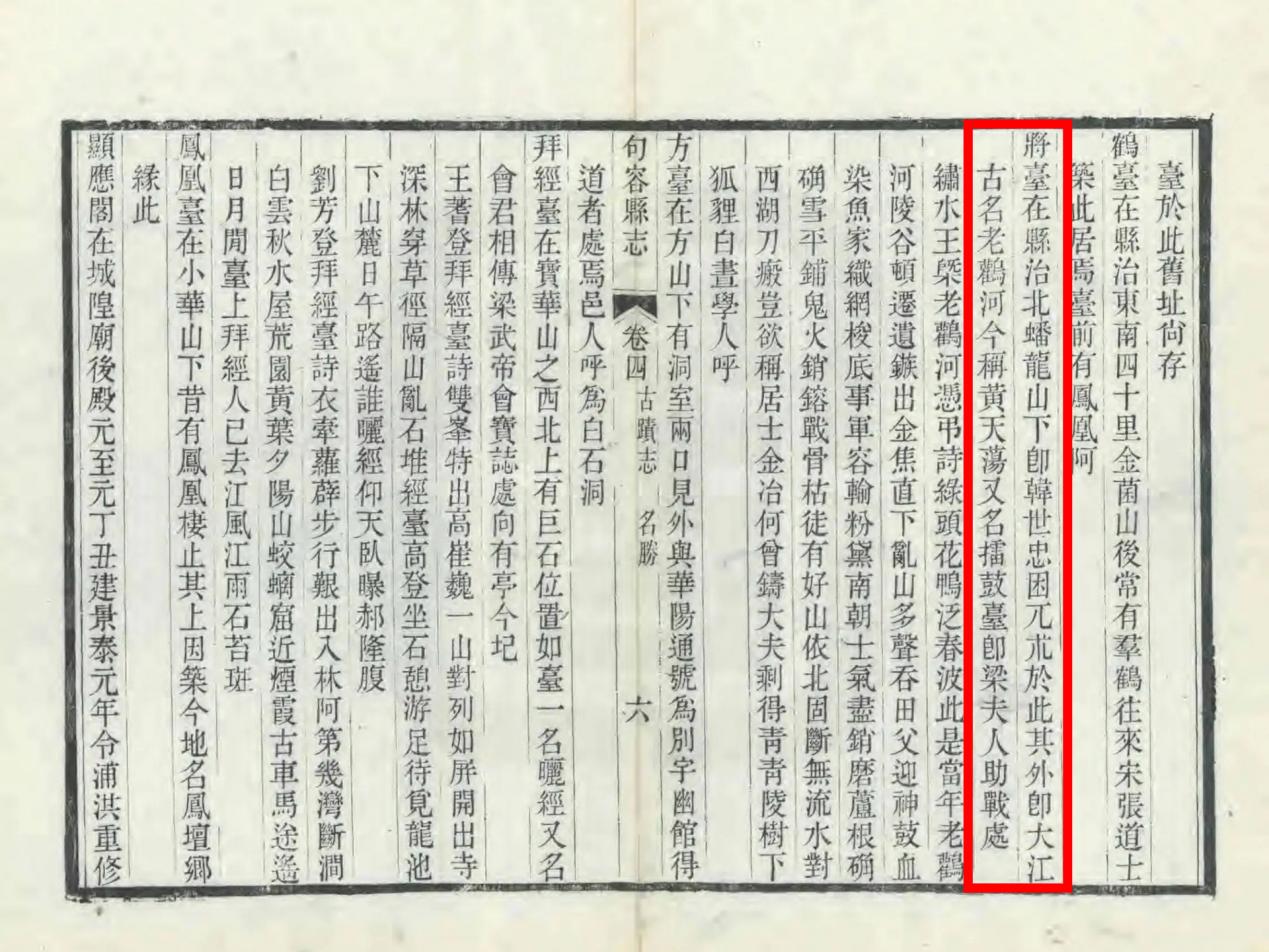 臺於此舊址尙存
鶴臺在縣治東南四十里金菌山後常有羣鶴往來宋張道士
築此居焉臺前有鳳凰阿
將臺在縣治北蟠龍山下卽韓世忠困兀朮於此其外卽大江
古名老鸛河今稱黃天蕩又名擂鼓臺卽梁夫人助戰處
繡水王槩老鸛河憑弔詩綠頭花鴨泛春波此是當年老鸛
河陵谷頓遷遺鏃出金焦直下亂山多聲吞田父迎神鼓血
染魚家織網梭底事軍容輸粉黛南朝士氣盡銷磨蘆根硝
硝雪平鋪鬼火銷鎔戰骨枯徒有好山依北固斷無流水對
西湖刀瘢豈欲稱居士金冶何曾鑄大夫剩得靑靑陵樹下
狐貍白晝學人呼
方臺在方山下有洞室兩口見外與華陽通號爲別宇幽館得
句容縣志 卷四 古蹟志 名勝 六
道者處焉邑人呼爲白石洞
拜經臺在寶華山之西北上有巨石位置如臺一名曬經又名
會君相傳梁武帝會寶誌處向有亭今圮
王蓍登拜經臺詩雙峯特出高崔巍一山對列如屏開出寺
深林穿草徑隔山亂石堆經臺高登坐石憩游足待覓龍池
下山麓日午路遙誰曬經仰天臥曝郝隆腹
劉芳登拜經臺詩衣牽蘿薜步行艱出入林阿第幾灣斷澗
白雲秋水屋荒園黃葉夕陽山蛟螭窟近煙霞古車馬途遙
日月閒臺上拜經人已去江風江雨石苔斑
鳳凰臺在小華山下昔有鳳凰棲止其上因築今地名鳳壇鄉
緣此
顯應閣在城隍廟後殿元至元丁丑建景泰元年令浦洪重修